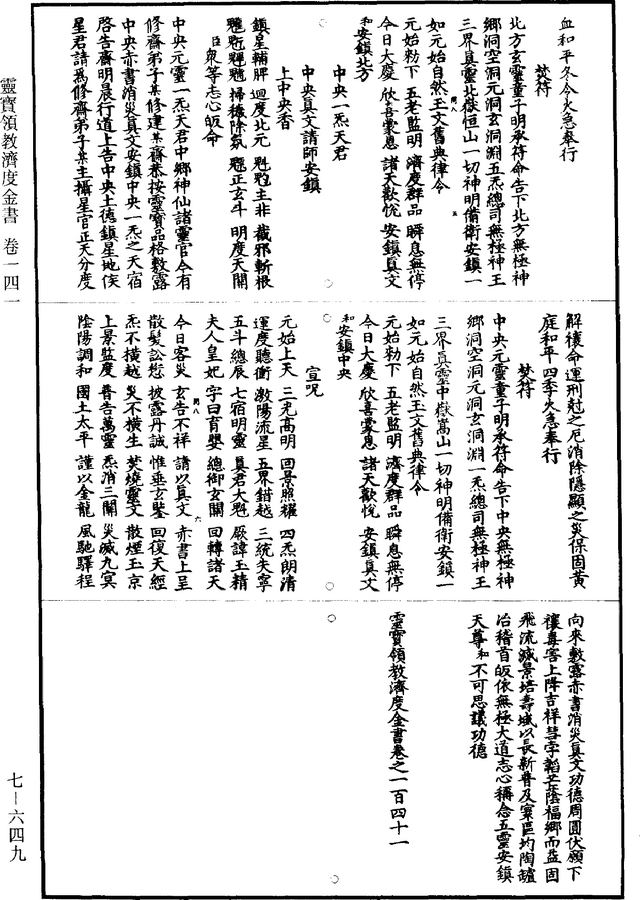 血和平冬令火急奉行
焚符
北方玄靈童子明承符命告下北方無極神
鄉洞空洞元洞玄洞淵五炁總司無極神王
三界真靈北嶽恒山一切神明備衛安鎮一
如元始自然玉文舊典律令
元始勑下 五老監明 濟度群品 瞬息無停
今日大慶 欣喜蒙恩 諸天歡悅 安鎮真文
和安鎮北方
中央一炁天君
中央真文請師安鎮
上中央香
鎮星輔脾 迴度北元 魁魁主非 截邪斬根
掃穢除氛 正玄斗 明度天關
臣衆等志心皈命
中央元靈一炁天君中鄉神仙諸靈官今有
修齋弟子某修建某齋恭按靈寶品格敷露
中央赤書消災真文安鎮中央一炁之天宿
啓告齋明晨行道上告中央土德鎮星地侯
星君請爲修齋弟子某主攝星官正天分度
解禳命運刑尅之厄消除隱顯之災保固黃
庭和平四季火急奉行
焚符
中央元靈童子明承符命告下中央無極神
鄉洞空洞元洞玄洞淵一炁總司無極神王
三界真靈中嶽嵩山一切神明備衛安鎮一
如元始自然玉文舊典律令
元始勑下 五老監明 濟度群品 瞬息無停
今日大慶 欣喜蒙恩 諸天歡悅 安鎮真文
和安鎮中央
宣咒
元始上天 三光高明 回景照耀 四炁朗清
運度聽衝 激陽流星 五界錯越 三統失寧
五斗總辰 七宿明靈 真君大魁 厥諱玉精
夫人皇妃 字曰育嬰 總御玄關 回轉諸天
今日客災 玄告不祥 請以真文 赤書上呈
散髮訟愆 披露丹誠 惟垂玄鑒 回復天經
炁不橫越 災不橫生 焚燒靈文 散煙玉京
上景監度 普告萬靈 炁消三關 災滅九冥
陰陽調和 國土太平 謹以金龍 風馳驛程
向來敷露赤書消災真文功德周圓伏願下
禳毒害上降吉祥彗孛韜芒蔭福鄉而益固
飛流滅景培壽域以長新普及寰區均陶罏
冶稽首皈依無極大道志心稱念五靈安鎮
天尊和不可思議功德
靈寶領教濟度金書卷之一百四十一
靈寶領教濟度金書 卷一四一
七—六四九